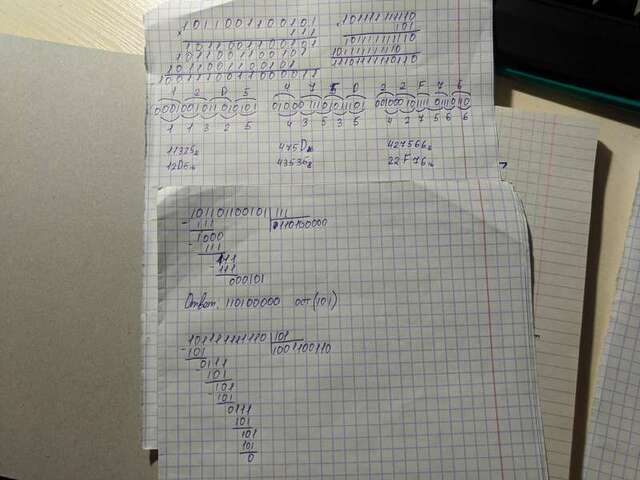 1011001100101
111
1011001100101
1011001100101
1011001100101
1001110011000011
101111111110
101
101111111110
101111111110
11101111110110
1 2 D 5
0001001011010101
1 1 3 2 5
4 7 5 D
4 3 5 3 5
2 2 F 7 6
4 2 7 5 6 6
11325₈
12D5₁₆
475D₁₆
43535₈
427566₈
22F76₁₆
101101100101 111
111 110100000
1000
111
111
111
000101
Ответ. 110100000 ост(101)
101111111110 101
101 1001100110
0111
101
101
101
0111
101
101
101
0